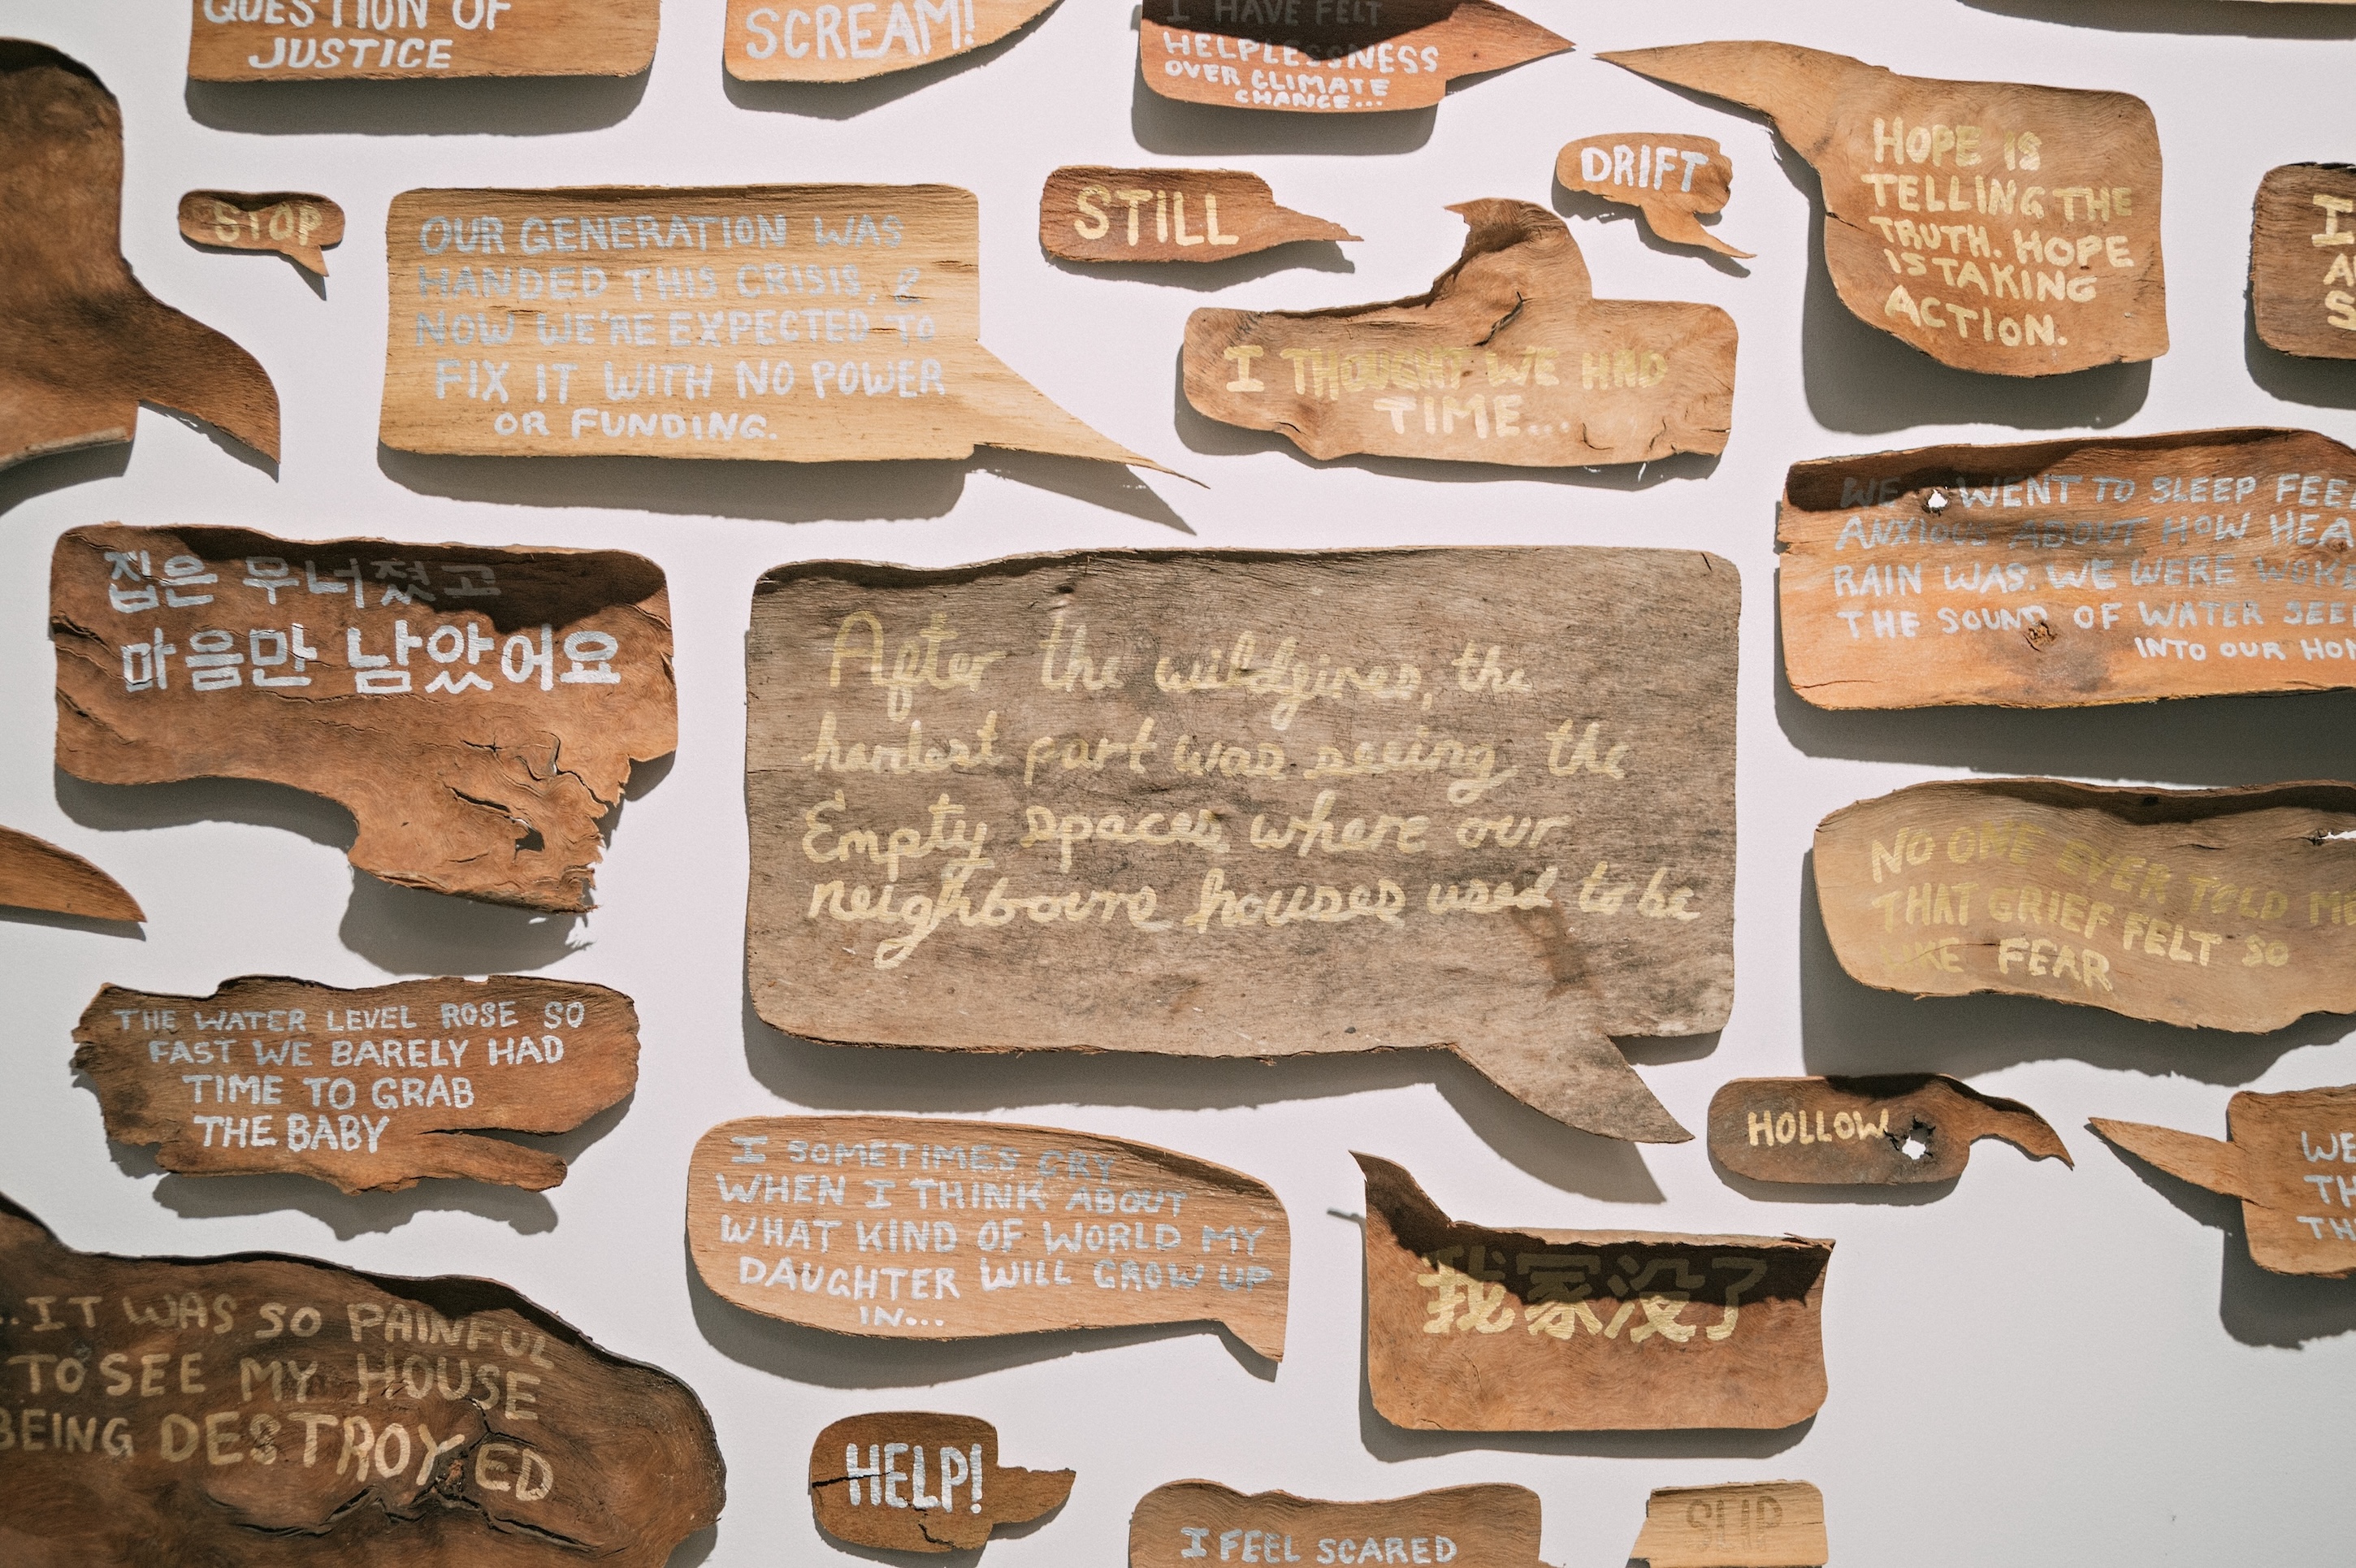 QUESTION OF
JUSTICE
SCREAM!
I HAVE FELT
HELPLESSNESS
OVER CLIMATE
CHANGE...
HOPE IS
TELLING THE
TRUTH. HOPE
IS TAKING
ACTION.
DRIFT
STOP
OUR GENERATION WAS
HANDED THIS CRISIS, &
NOW WE'RE EXPECTED TO
FIX IT WITH NO POWER
OR FUNDING.
STILL
I THOUGHT WE HAD
TIME...
I
WE WENT TO SLEEP
ANXIOUS ABOUT HOW
RAIN WAS. WE WERE
THE SOUND OF WATER
INTO OUR
집은 무너졌고
마음만 남았어요
After the wildfires, the
hardest part was seeing the
Empty spaces where our
neighbours houses used to be
NO ONE EVER TOLD ME
THAT GRIEF FELT SO
LIKE FEAR
THE WATER LEVEL ROSE SO
FAST WE BARELY HAD
TIME TO GRAB
THE BABY
HOLLOW
WE
I SOMETIMES CRY
WHEN I THINK ABOUT
WHAT KIND OF WORLD MY
DAUGHTER WILL GROW UP
IN...
我家没了
...IT WAS SO PAINFUL
TO SEE MY HOUSE
BEING DESTROYED
HELP!
I FEEL SCARED
SLIP